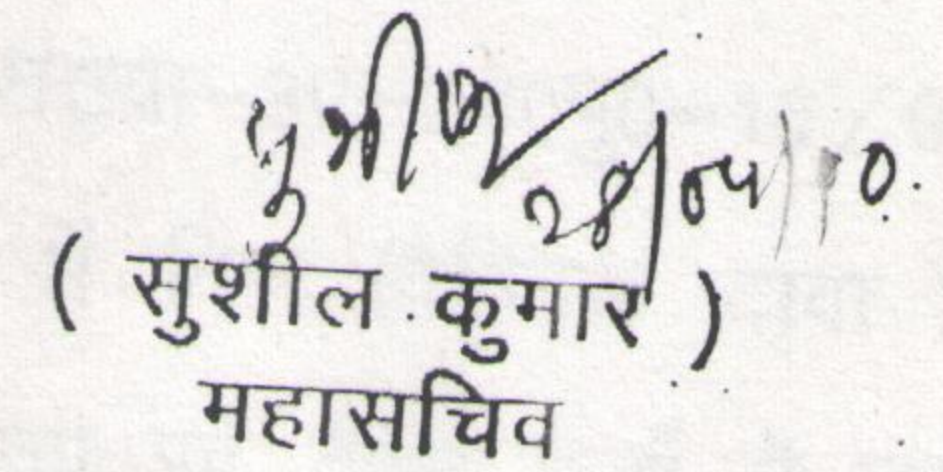 सुशील
28/05/10.
( सुशील कुमार )
महासचिव